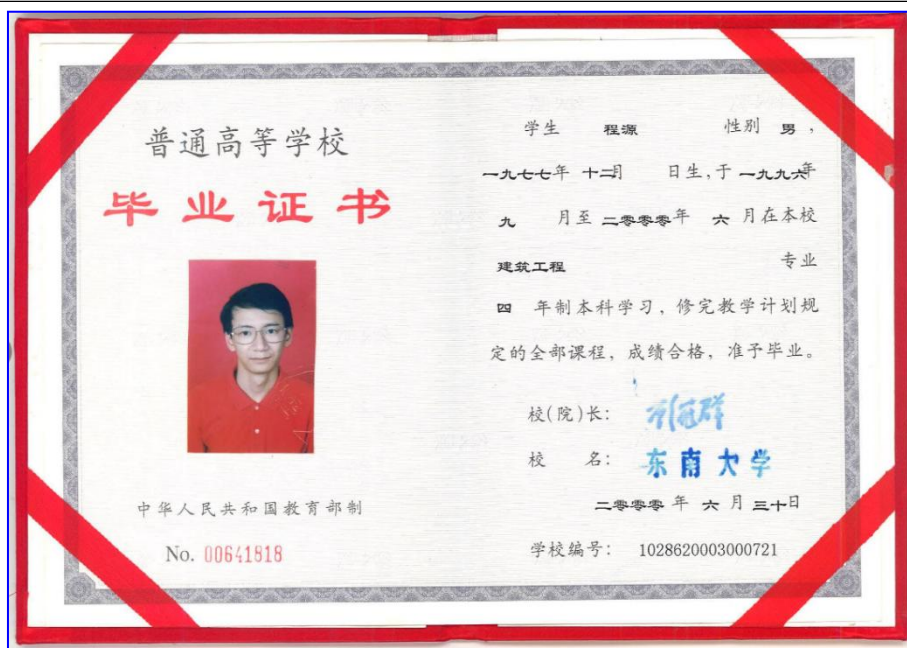 普通高等学校
毕业证书
中华人民共和国教育部制
No. 00641818
学生 程源 性别 男,
一九七七年 十二月 日生,于 一九九六年
九 月至 二零零零年 六 月在本校
建筑工程 专业
四 年制本科学习,修完教学计划规
定的全部课程,成绩合格,准予毕业。
校(院)长:
校 名: 东南大学
二零零零 年 六 月 三十日
学校编号: 1028620003000721